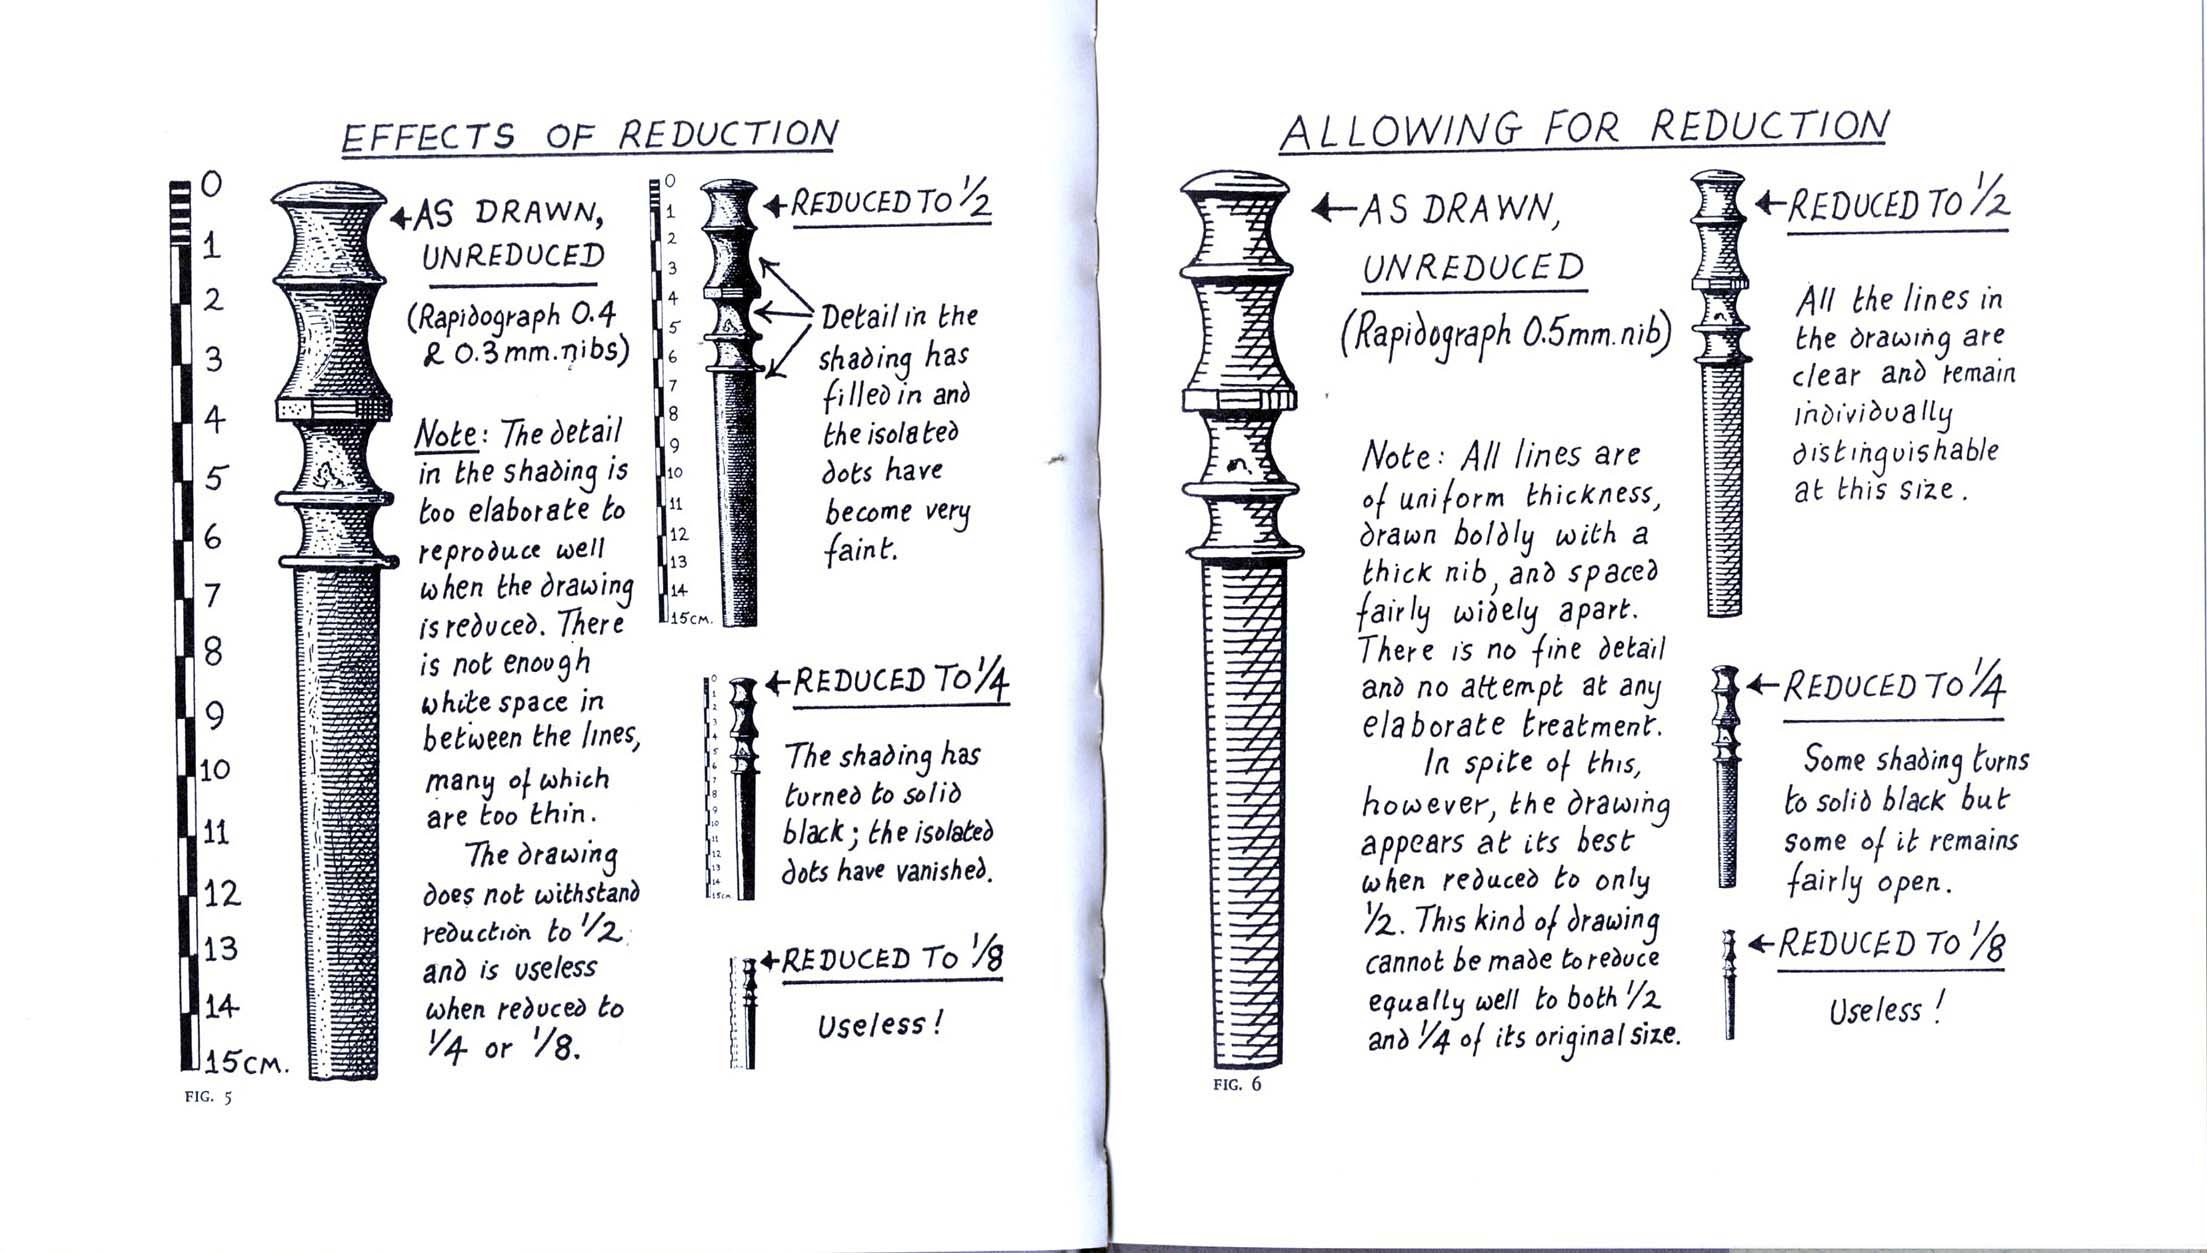 EFFECTS OF REDUCTION
0
1
2
3
4
5
6
7
8
9
10
11
12
13
14
15 CM.
AS DRAWN,
UNREDUCED
(Rapidograph 0.4
& 0.3mm. nibs)
Note: The detail
in the shading is
too elaborate to
reproduce well
when the drawing
is reduced. There
is not enough
white space in
between the lines,
many of which
are too thin.
The drawing
does not withstand
reduction to 1/2
and is useless
when reduced to
1/4 or 1/8.
FIG. 5
0
1
2
3
4
5
6
7
8
9
10
11
12
13
14
15 CM.
REDUCED TO 1/2
Detail in the
shading has
filled in and
the isolated
dots have
become very
faint.
0
1
2
3
4
5
6
7
8
9
10
11
12
13
14
15 CM.
REDUCED TO 1/4
The shading has
turned to solid
black; the isolated
dots have vanished.
REDUCED TO 1/8
Useless!
ALLOWING FOR REDUCTION
AS DRAWN,
UNREDUCED
(Rapidograph 0.5mm. nib)
Note: All lines are
of uniform thickness,
drawn boldly with a
thick nib, and spaced
fairly widely apart.
There is no fine detail
and no attempt at any
elaborate treatment.
In spite of this,
however, the drawing
appears at its best
when reduced to only
1/2. This kind of drawing
cannot be made to reduce
equally well to both 1/2
and 1/4 of its original size.
FIG. 6
REDUCED TO 1/2
All the lines in
the drawing are
clear and remain
individually
distinguishable
at this size.
REDUCED TO 1/4
Some shading turns
to solid black but
some of it remains
fairly open.
REDUCED TO 1/8
Useless!